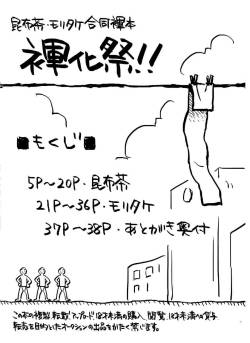 昆布茶・モリタケ合同褌本
褌化祭!!
■もくじ■
5P〜20P・昆布茶
21P〜36P・モリタケ
37P〜38P・あとがき奥付
この本の複製、転載、アップロード、18才未満の購入、閲覧、18才未満への貸与
転売を目的としたオークションの出品をかたく禁じます。